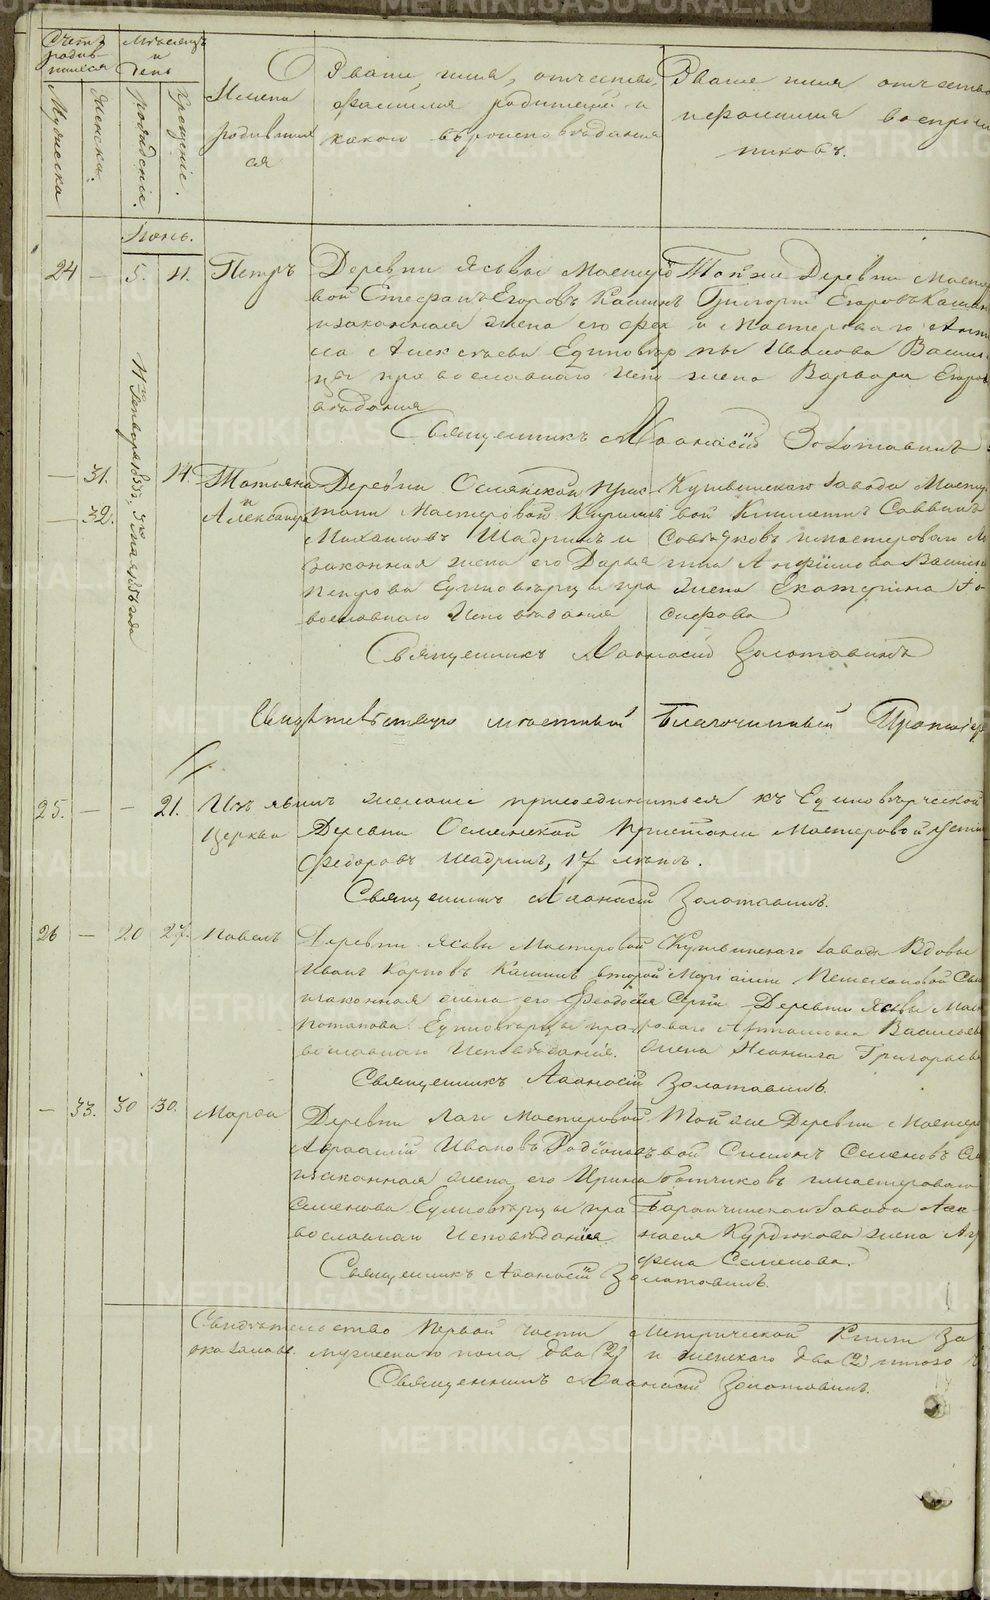 METRIKI.GASO-URAL.RU
Счетъ родив-шихся
Мѣсяцъ и день
Мужеска
Женска.
рожденіе.
Крещеніе.
Имена родившихся
Званіе имя, отчество,
фамилия родителей и
какого вѣроисповѣданія
Званіе имя отчество
и фамилия восприем
никовъ.
Іюнь.
24 — 5. 11. Петръ
Деревни Ясьвы Мастеро
вой Стефанъ Егоровъ Кашинъ
и законная жена его
на Алексѣева Единовѣр
цы православнаго Испо
вѣданія
Той же Деревни Масте
Григорій Егоровъ Кашин
и Мастероваго
Иванова
жена Варвара Егоров
Священникъ Аѳанасій Золотавинъ
— 31. 14. Татьяна
и
— 32. Александра
Деревни Ослянской Прис-
тани Мастеровой Кирилъ
Михаиловъ Шадринъ и
законная жена его Дарья
Петрова Единовѣрцы пра
вославнаго Исповѣданія
Кушвинскаго завода Масте
вой Климентъ Саввинъ
и мастероваго
жена Екатерина Іо
сифова
Священникъ Аѳанасій Золотавинъ
Свидѣтельствую мѣстный Благочинный Протоіер
25. — — 21. Изъявилъ желаніе присоединиться къ Единовѣрческой
Церкви Деревни Ослянской Пристани Мастеровой
Федоровъ Шадринъ, 17 лѣтъ.
Священникъ Аѳанасій Золотавинъ.
26 — 20 27. Павелъ
Деревни Ясьвы Мастеровой
Иванъ Карповъ Кашинъ второй
и законная жена его Феодосия
Потапова Единовѣрцы пра
вославнаго Исповѣданія.
Кушвинскаго завода Вдовы
Сынъ
Деревни Ясьвы Мас
роваго Артамона Васильева
жена Неонила Григорьева
Священникъ Аѳанасій Золотавинъ.
— 33. 30 30. Марѳа
Деревни Лаи Мастеровой
Авраамій Ивановъ Родіоновъ
и законная жена его Ирина
Семенова Единовѣрцы пра
вославнаго Исповѣданія
Той же Деревни Мастеро
вой Симонъ Семеновъ
и мастероваго
Баранчинскаго завода Аѳа-
насія Курдюкова жена Аг
фена Семенова.
Священникъ Аѳанасій Золотавинъ.
Свидѣтельство Первой части Метрической Книги За
оказалось мужескаго пола два (2) и женскаго два (2) итого
Священникъ Аѳанасій Золотавинъ.